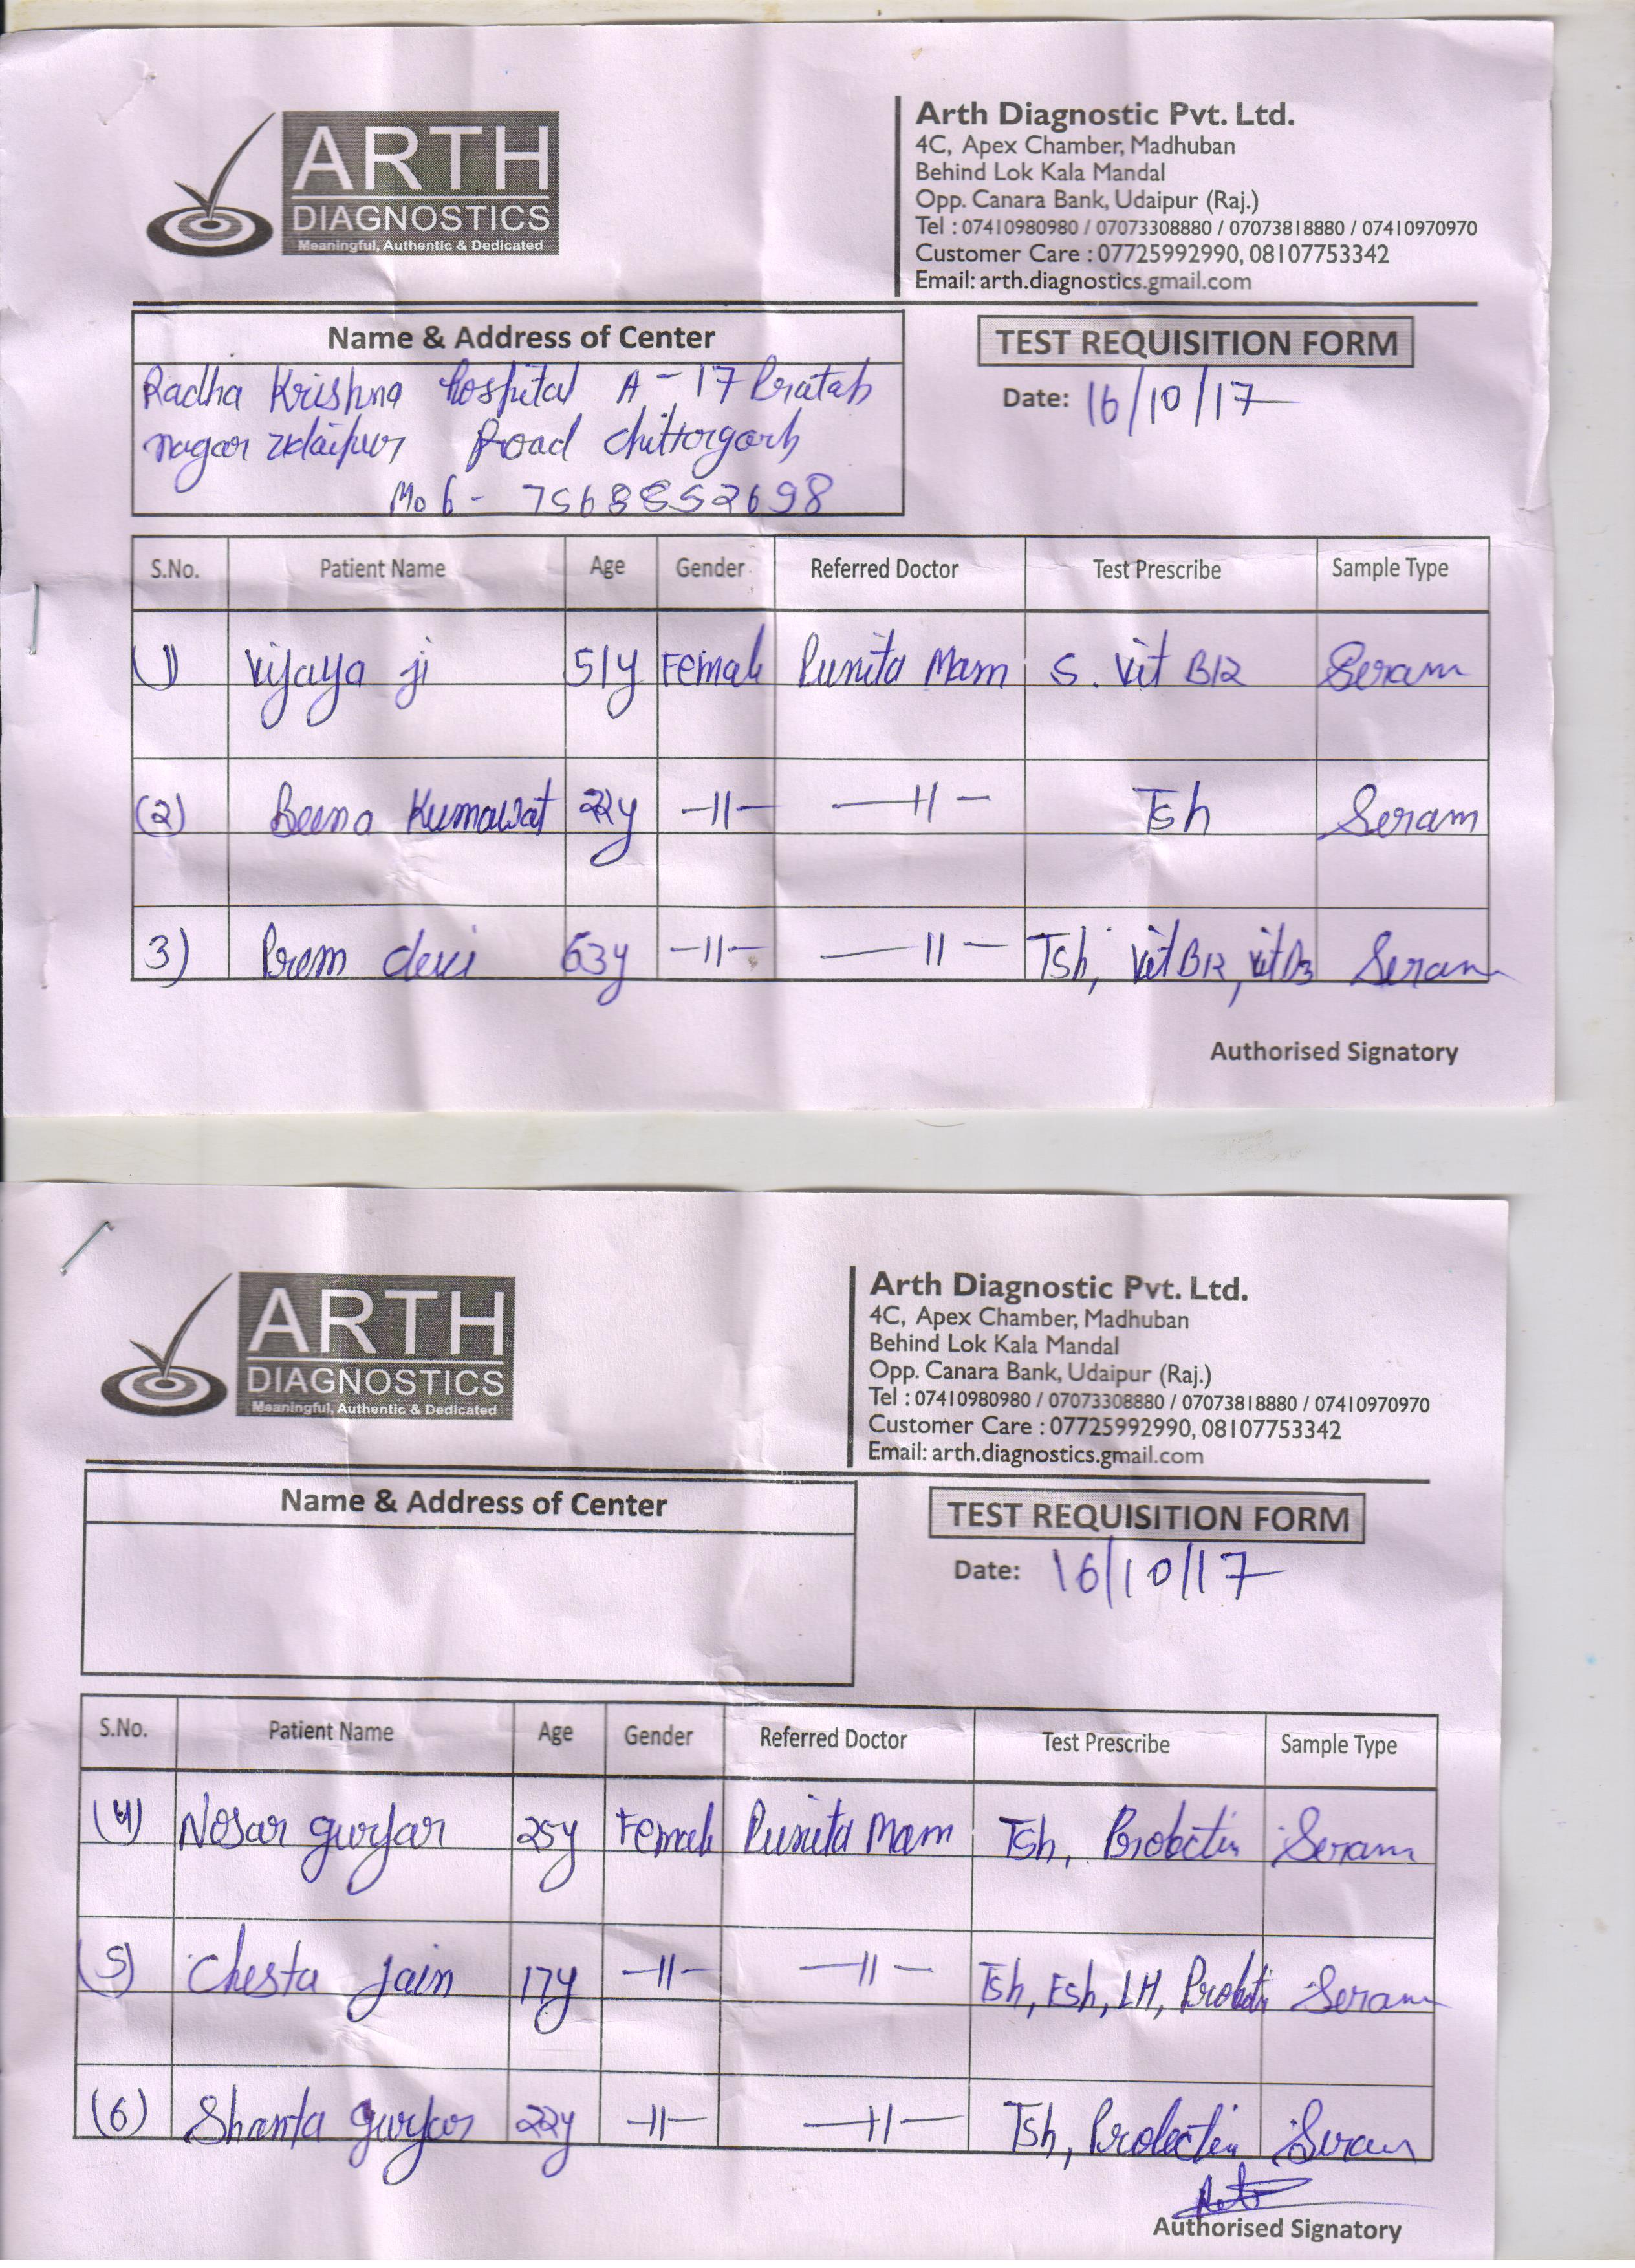 ARTH
DIAGNOSTICS
Meaningful, Authentic & Dedicated
Arth Diagnostic Pvt. Ltd.
4C, Apex Chamber, Madhuban
Behind Lok Kala Mandal
Opp. Canara Bank, Udaipur (Raj.)
Tel : 07410980980 / 07073308880 / 07073818880 / 07410970970
Customer Care : 07725992990, 08107753342
Email: arth.diagnostics.gmail.com
Name & Address of Center
TEST REQUISITION FORM
Radha Krishna Hospital A - 17 Pratab
Date: 16/10/17
nagar Udaipur Road Chittorgarh
Mob - 7568852698
S.No. Patient Name Age Gender Referred Doctor Test Prescribe Sample Type
1) Vijaya ji 51y Female Punita Mam S. Vit B12 Seram
(2) Beena Kumawat 22y -11- -11- Tsh Seram
3) Prem devi 63y -11- -11- Tsh, Vit B12, Vit D3 Seram
Authorised Signatory
ARTH
DIAGNOSTICS
Meaningful, Authentic & Dedicated
Arth Diagnostic Pvt. Ltd.
4C, Apex Chamber, Madhuban
Behind Lok Kala Mandal
Opp. Canara Bank, Udaipur (Raj.)
Tel : 07410980980 / 07073308880 / 07073818880 / 07410970970
Customer Care : 07725992990, 08107753342
Email: arth.diagnostics.gmail.com
Name & Address of Center
TEST REQUISITION FORM
Date: 16/10/17
S.No. Patient Name Age Gender Referred Doctor Test Prescribe Sample Type
(4) Nosar gurjar 25y Female Punita Mam Tsh, Prolactin Seram
(5) Chesta Jain 17y -11- -11- Tsh, Fsh, LH, Seram
(6) Shanta gurjar 22y -11- -11- Tsh, Prolectin Seram
Authorised Signatory